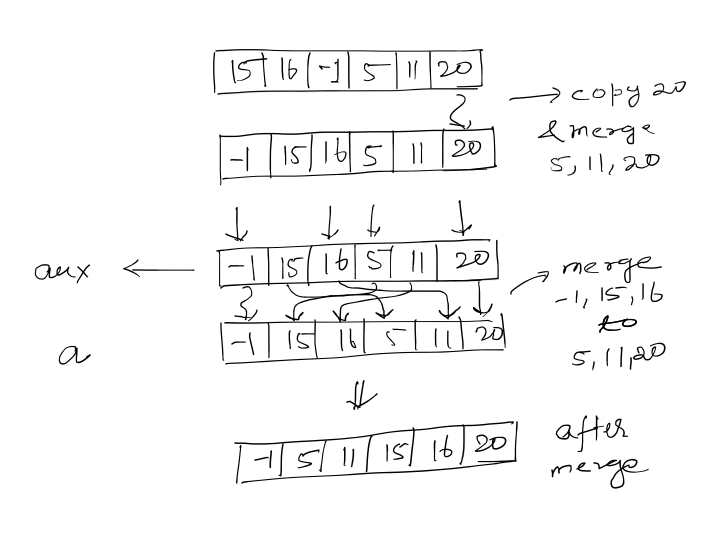 15 16 -1 5 11 20
→ copy 20
& merge
5, 11, 20
-1 15 16 5 11 20
aux ← -1 15 16 5 11 20
→ merge
-1, 15, 16
to
5, 11, 20
a -1 15 16 5 11 20
-1 5 11 15 16 20
after
merge